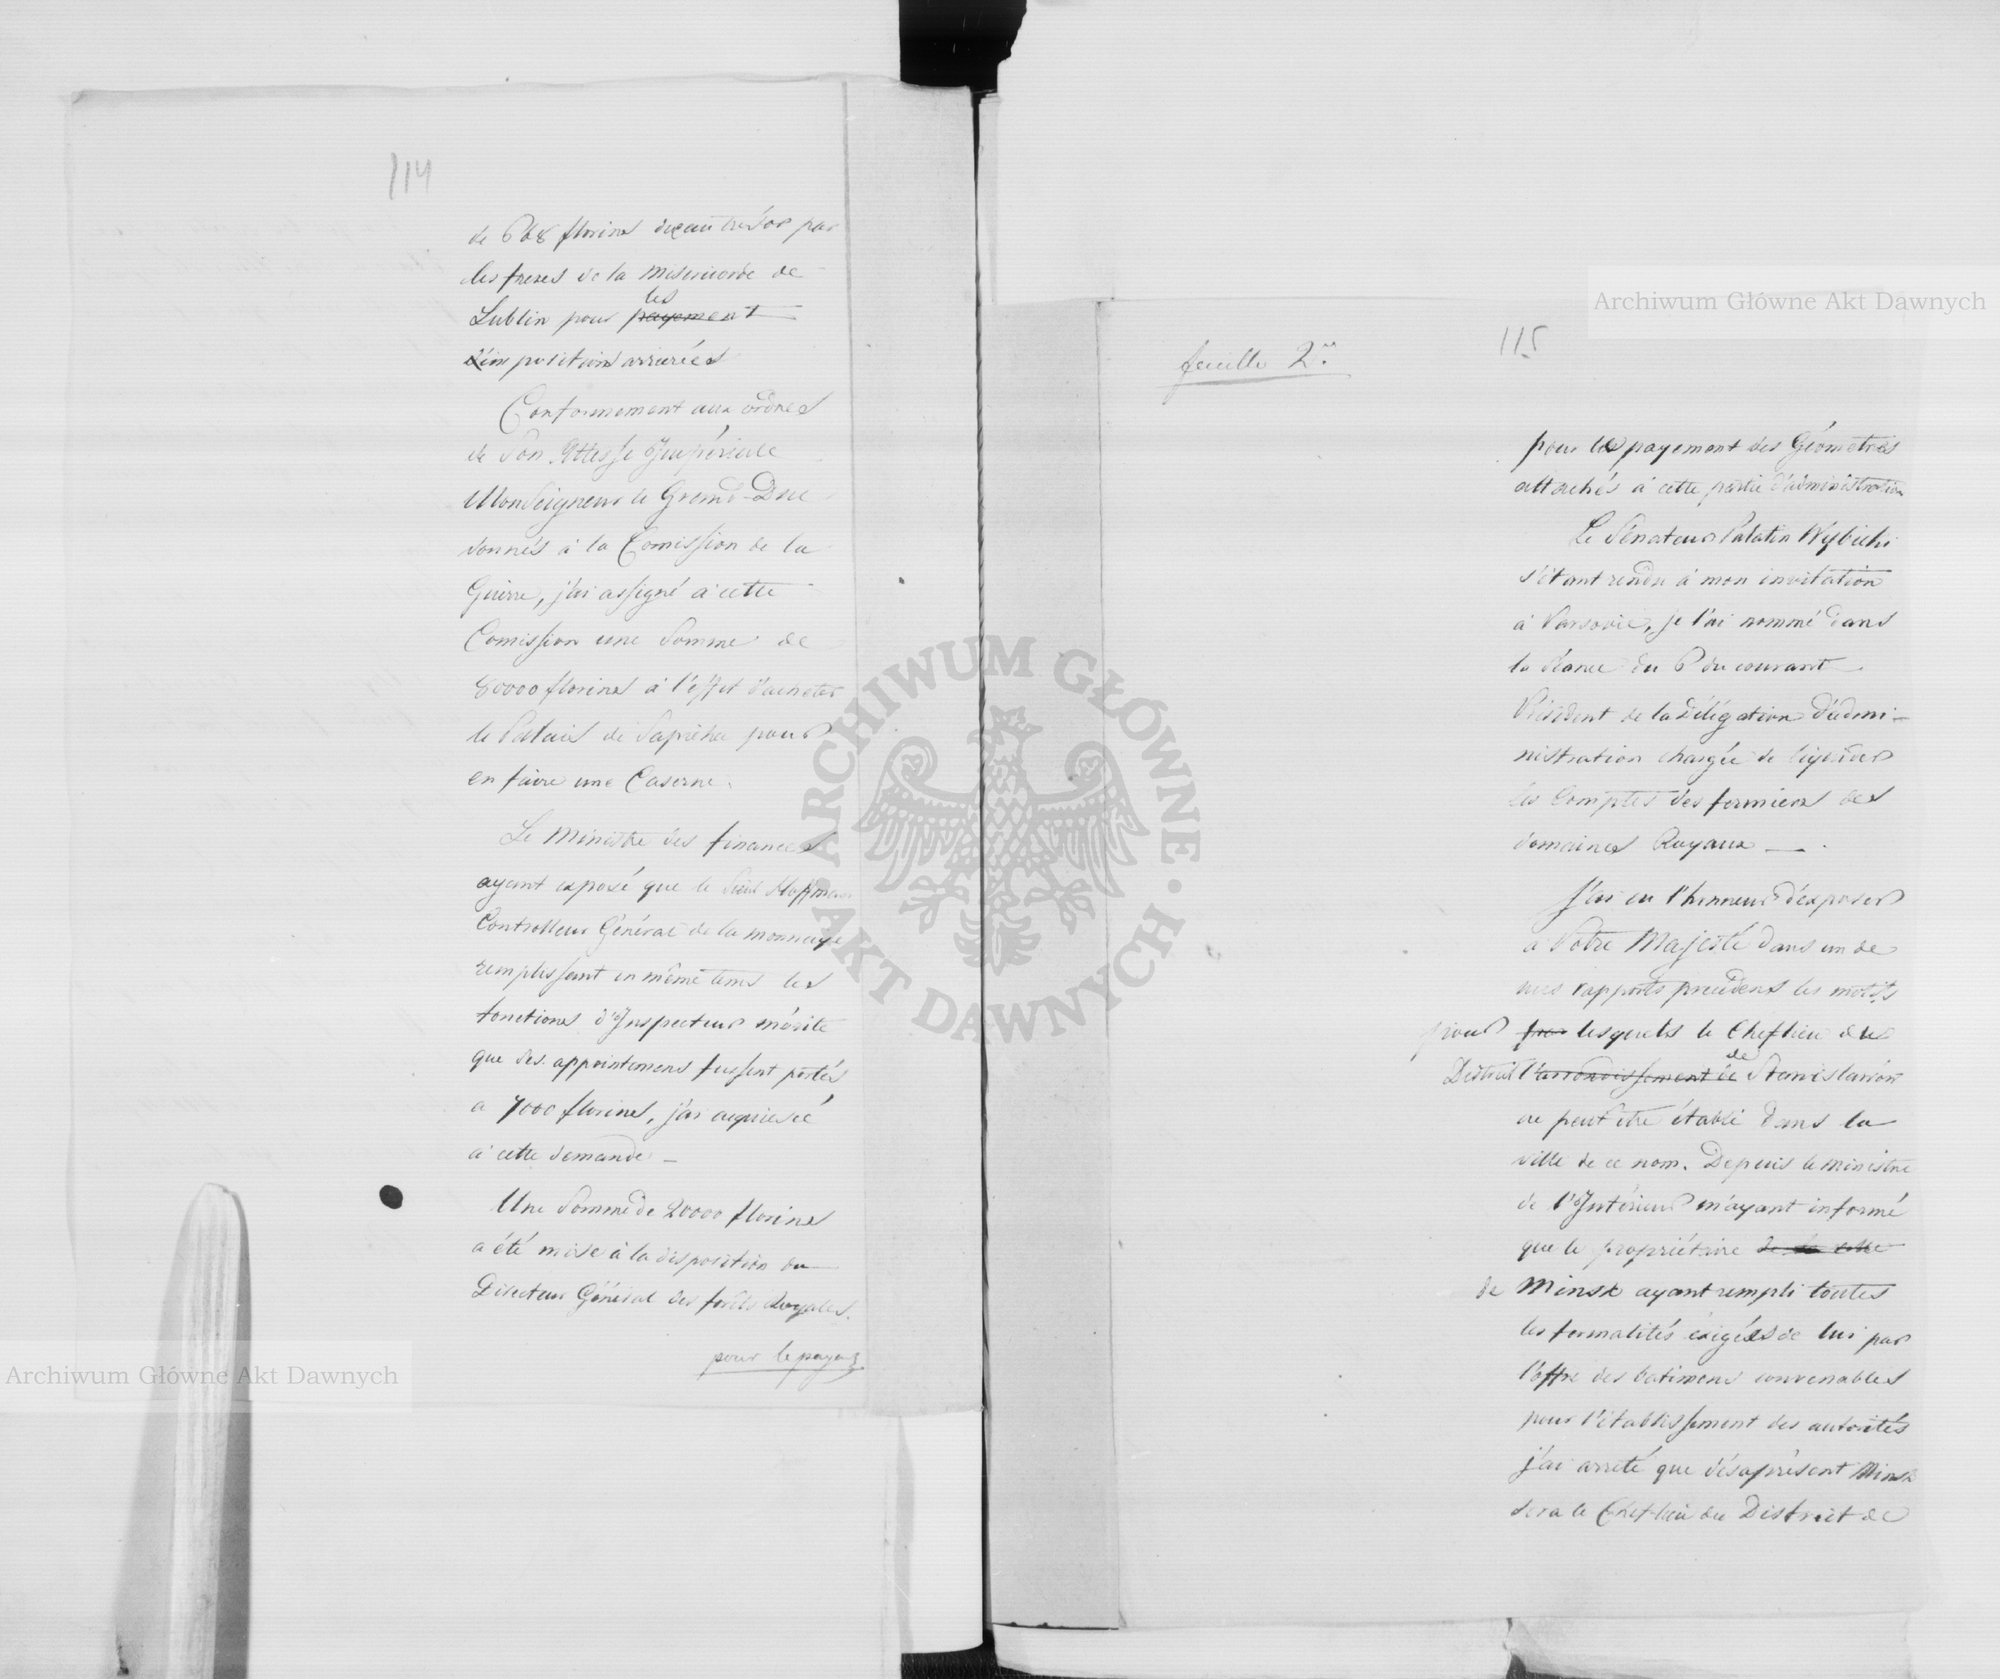 114
de 668 florins dûs au trésor par
les freres de la Misericorde de
Lublin pour payement
les
d'impositions arriérées
Conformement aux ordres
de Son Altesse Impériale
Monseigneur le Grand-Duc
donnés à la Comission de la
Guerre, j'ai assigné à cette
Comission une Somme de
80000 florins à l'effet d'acheter
le Palais de Sapieha pour
en faire une Caserne.
Le Ministre des finances
ayant exposé que le Sieur Hoffman
Controlleur Général de la monnaye
remplissant en même tems les
fonctions d'Inspecteur mérite
que ses appointemens fussent portés
a 7000 florins, j'ai acquiescé
à cette demande —
Une Somme de 20000 florins
a été mise à la disposition du
Directeur Général des forêts Royales.
pour le paye
Archiwum Główne Akt Dawnych
ARCHIWUM GŁÓWNE AKT DAWNYCH
Archiwum Główne Akt Dawnych
115
feuille 2
pour le payement des Géometres
attachés à cette partie d'administration
Le Sénateur Palatin Wybicki
s'étant rendu à mon invitation
à Varsovie, je l'ai nommé dans
la séance du 6 du courant
Président de la Délégation d'admi-
nistration chargée de liquider
les Comptes des fermiers des
domaines Royaux — .
J'ai eu l'honneur d'exposer
a Votre Majesté dans un de
mes rapports précédens les motifs
pour lesquels le Cheflieu du
District l'arrondissement de de Stanislawow
ne peut être établi dans la
ville de ce nom. Depuis le ministre
de l'Intérieur m'ayant informé
que le propriétaire de la ville
de Minsk ayant rempli toutes
les formalités exigées de lui par
l'offre des batimens convenables
pour l'établissement des autorités
j'ai arreté que désaprésent Minsk
sera le Chef-lieu du District de